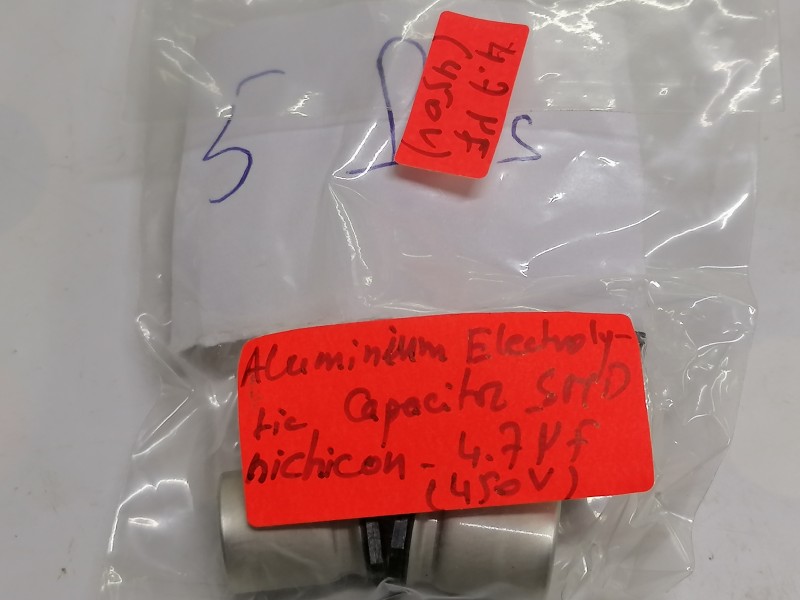 5
s
4.7 µF
(450V)
Aluminium Electroly-
tic Capacitor SMD
nichicon - 4.7 µf
(450V)